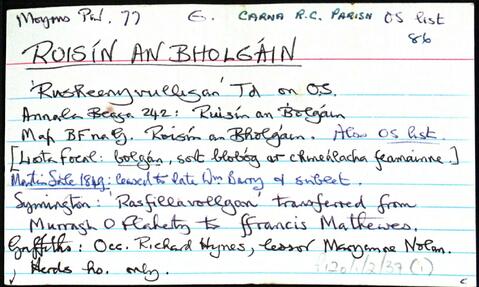 Moyrus Par. 77 E. CARNA R.C. PARISH OS list
86
ROISÍN AN BHOLGÁIN
'Rusheenyvulligan' Td on O.S.
Annála Beaga 242: Ruisín an Bolgáin
Map BFnaG. Roisín an Bholgáin. Also OS list.
[Liosta Focal: bolgán, sort blobóg ar chineálacha feamainne.]
Martin Sale 1849: leased to late Wm Barry & sublet.
Symington: 'Rasfillavollgon' transferred from
Murragh O Flaherty to ffrancis Mathewes.
Griffiths: Occ. Richard Hynes, lessor Maryanne Nolan.
Herds ho. only.
p120/1/2/39 (1)